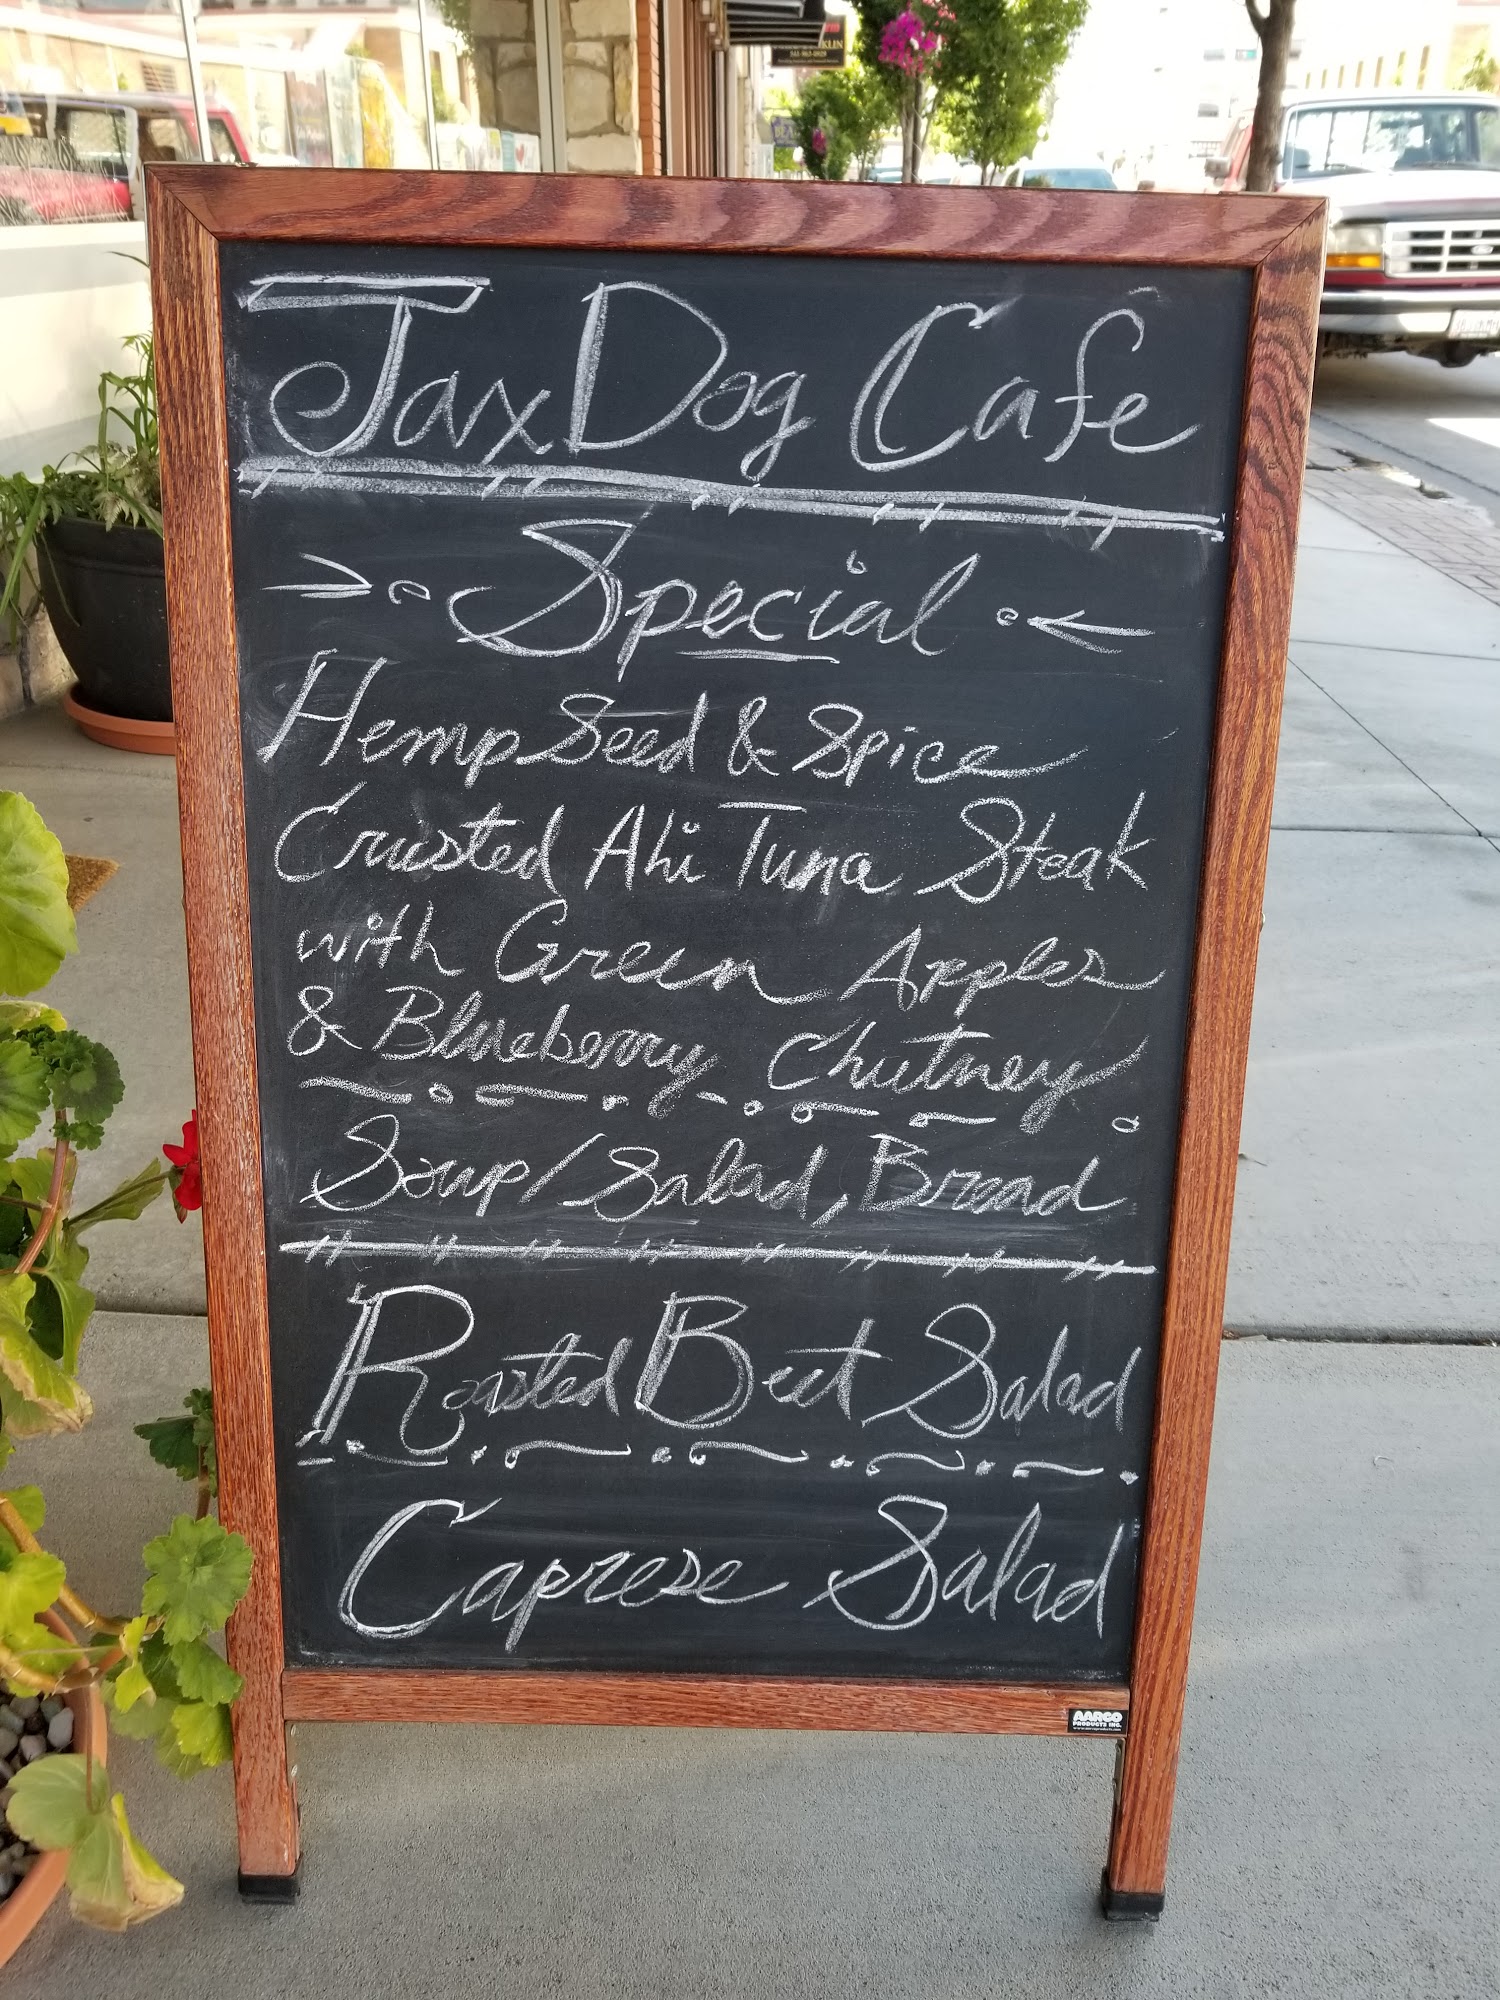 Jax Dog Cafe
Special
Hemp Seed & Spice
Crusted Ahi Tuna Steak
with Green Apples
& Blueberry Chutney
Soup/Salad, Bread
Roasted Beet Salad
Caprese Salad
AARCO
PRODUCTS INC.